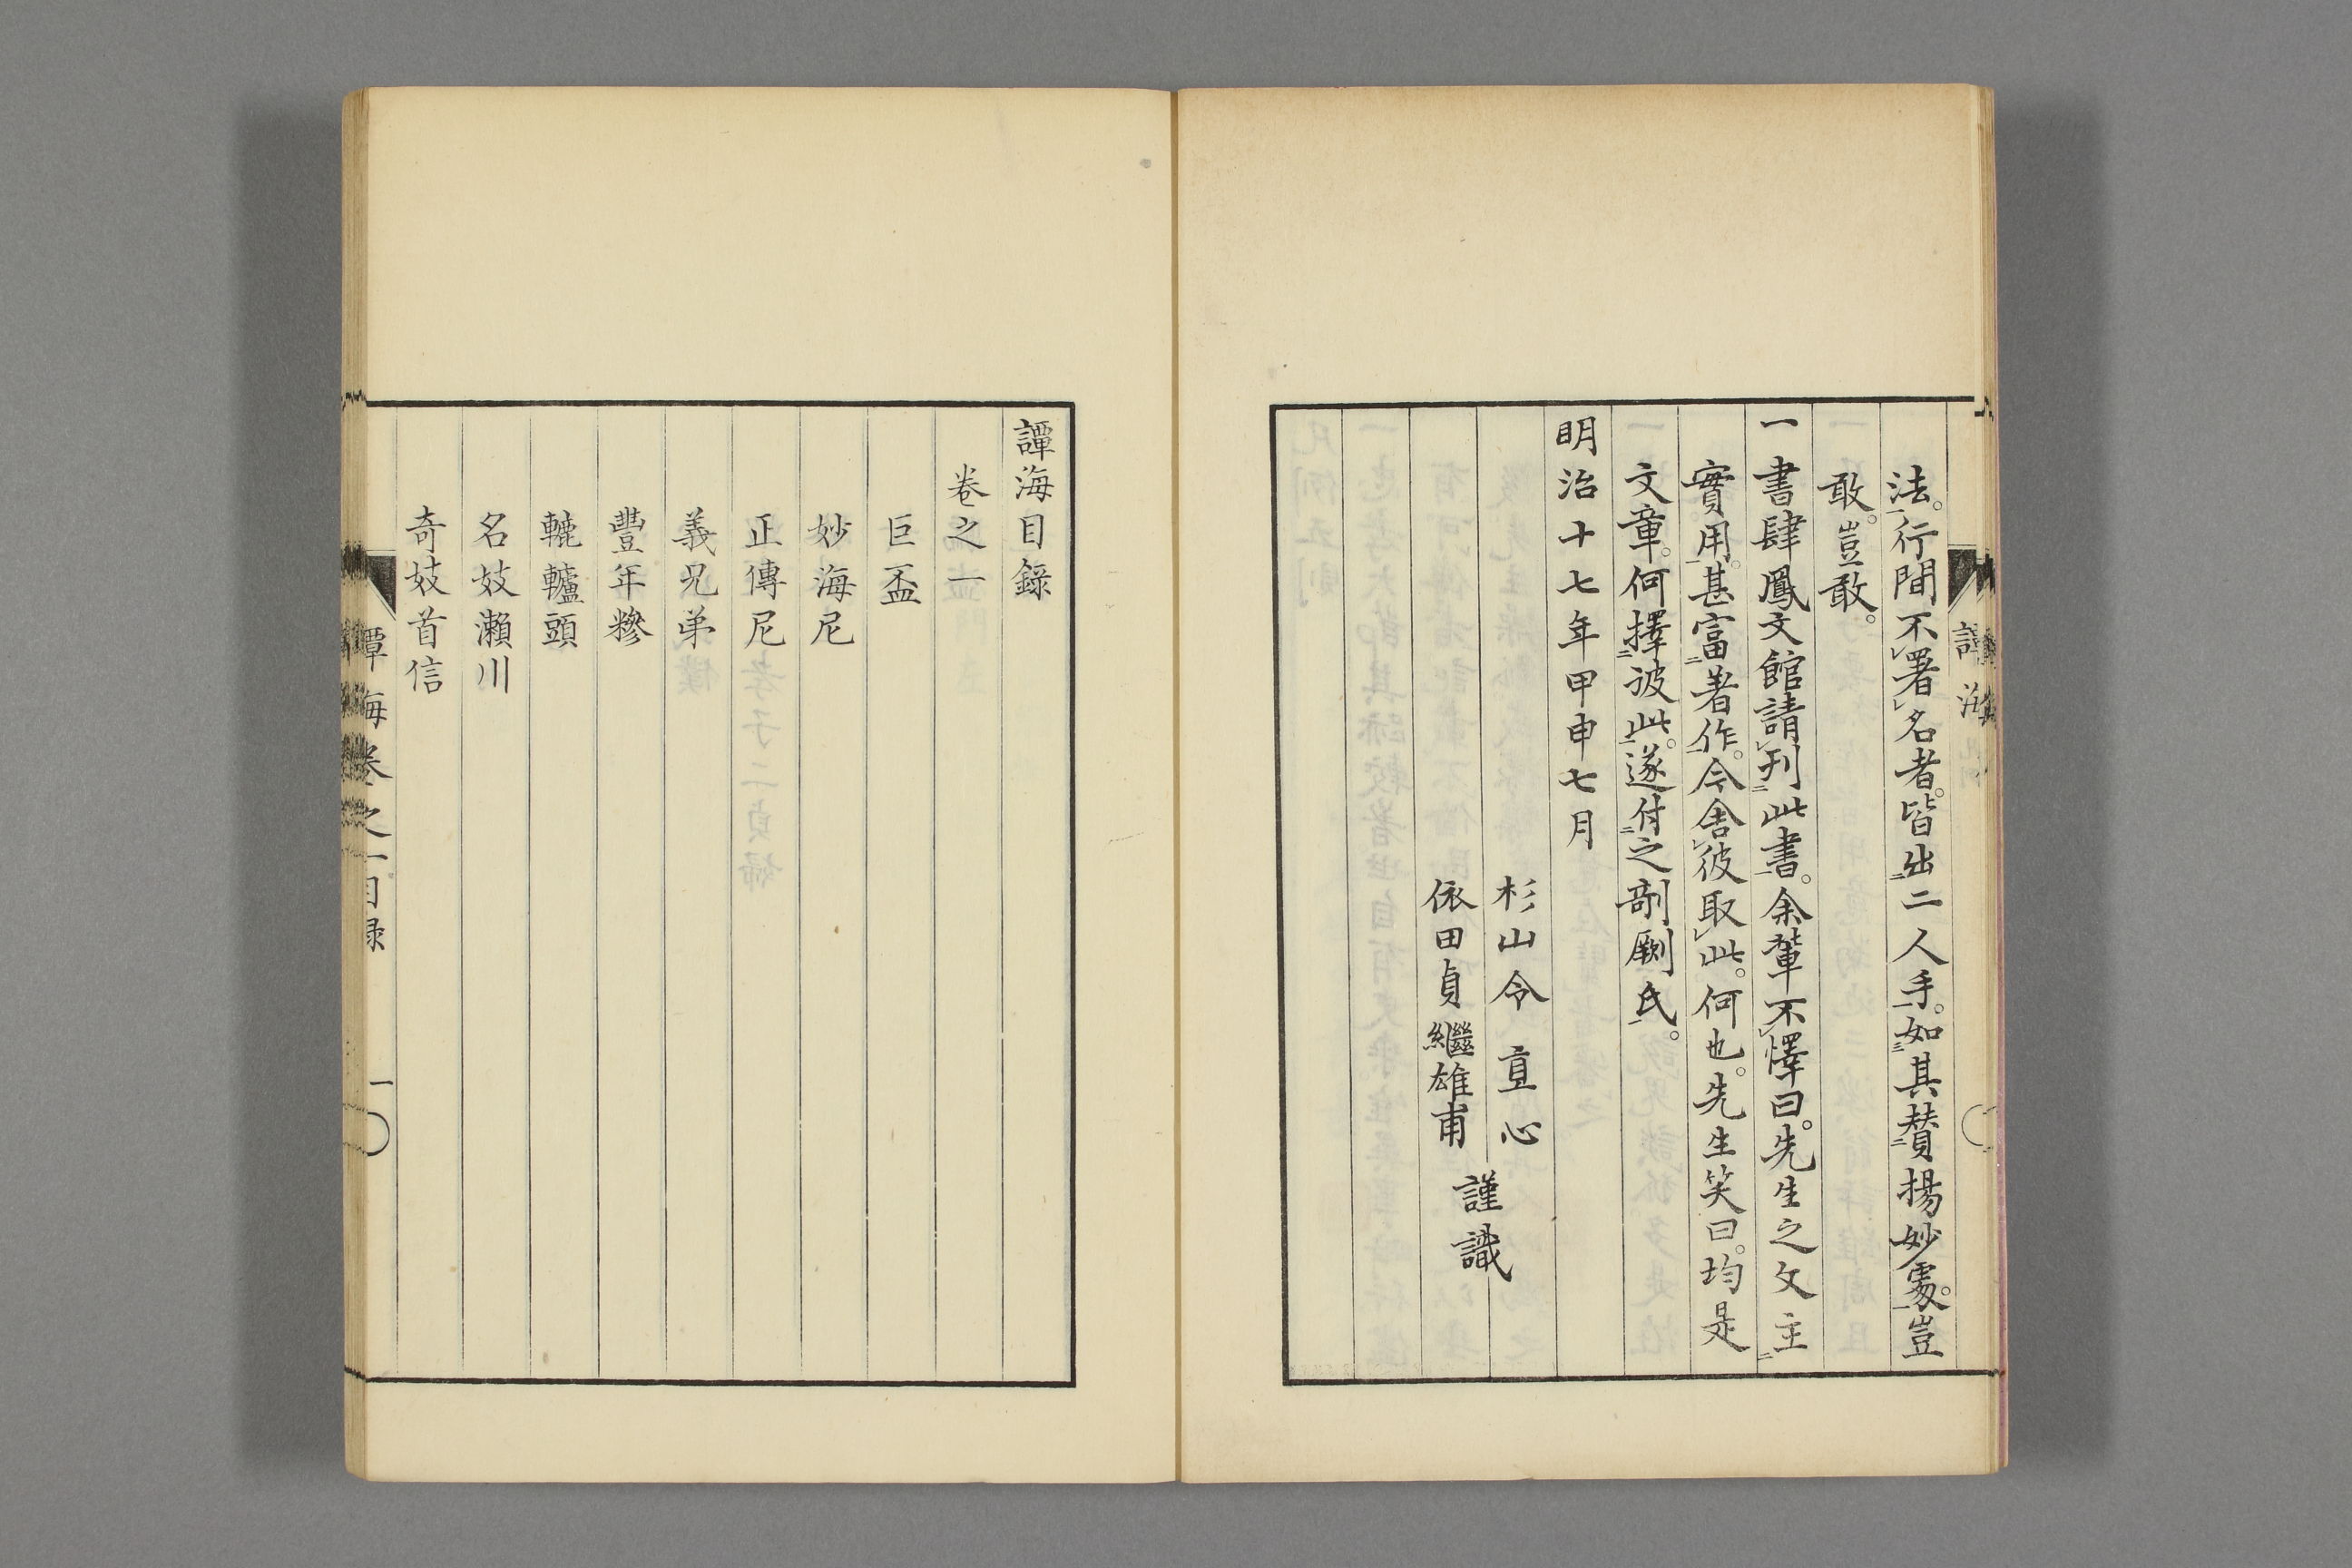 法。行間不署名者。皆出二人手。如其賛揚妙處。豈
敢。豈敢。
一書肆鳳文館請刊此書。余輩不懌曰。先生之文主
實用。甚富著作。今舍彼取此。何也。先生笑曰。均是
文章。何擇彼此。遂付之剞劂氏。
明治十七年甲申七月
杉山令 亶心
依田貞繼雄甫
謹識
譚海目錄
卷之一
巨盃
妙海尼
正傳尼
義兄弟
豐年糝
轆轤頭
名妓瀨川
奇妓首信
譚海卷之一目録 一